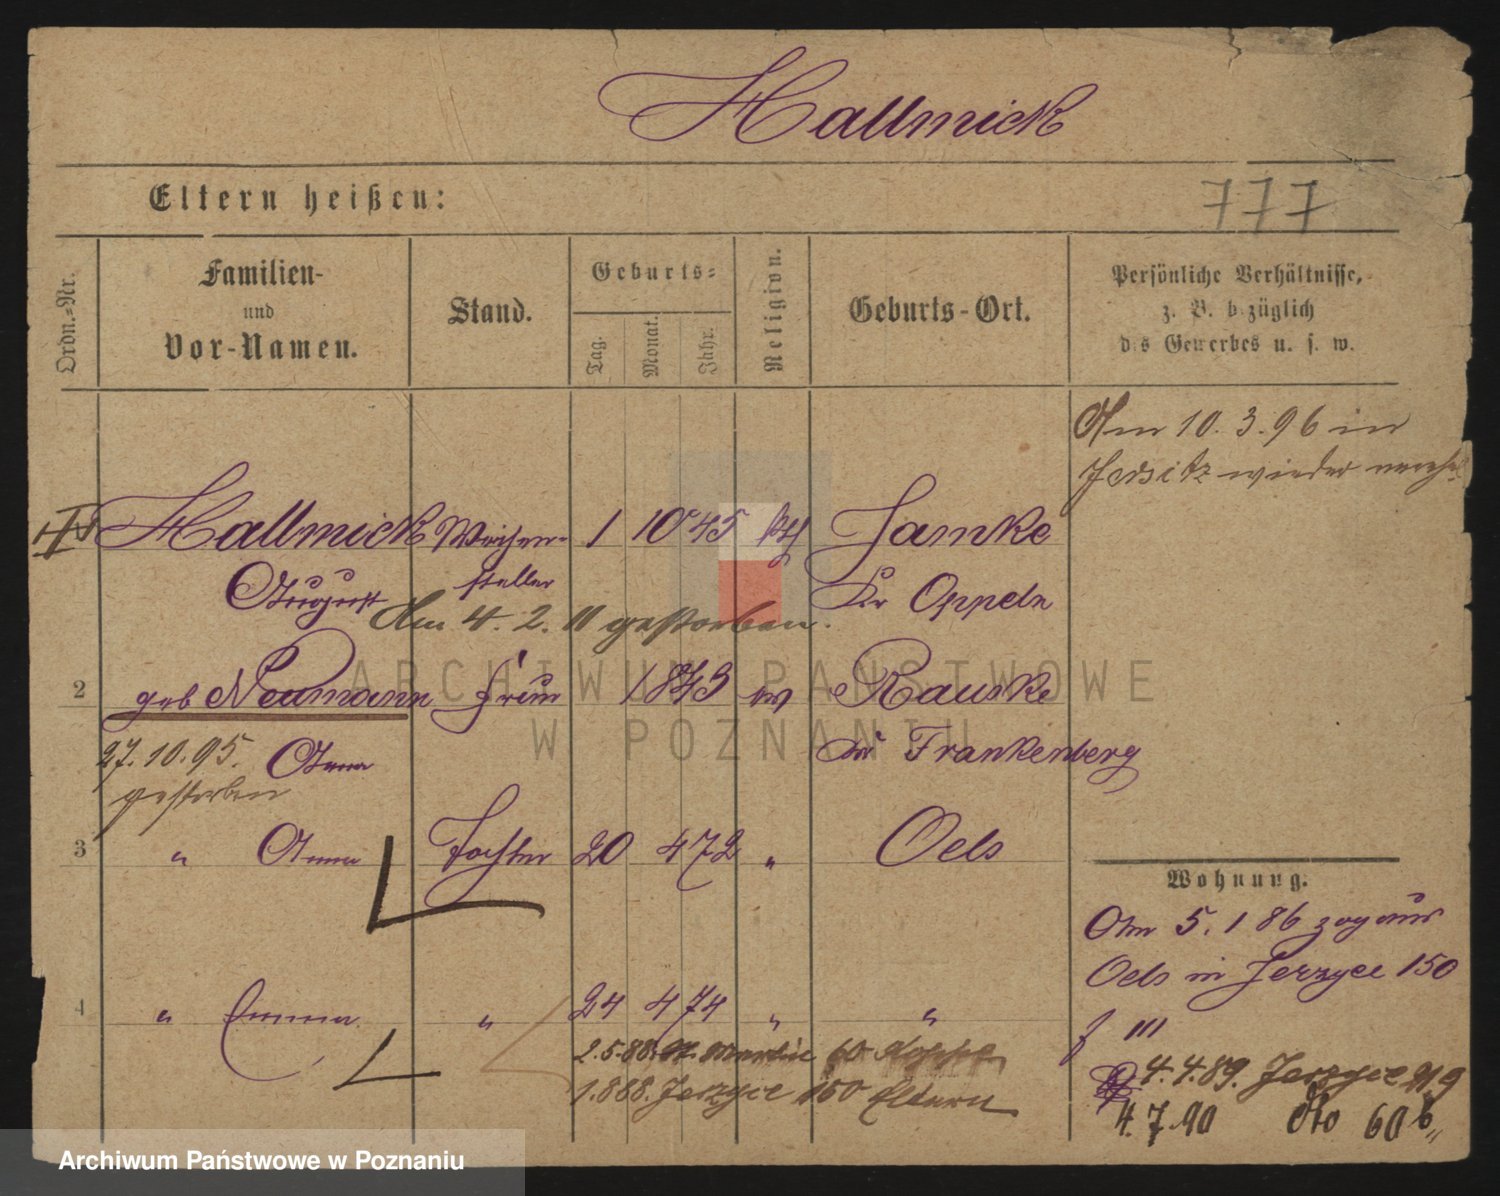 Hallmick
Eltern heißen:
777
Ordn.-Nr.
Familien-
und
Vor-Namen.
Stand.
Geburts-
Tag.
Monat.
Jahr.
Religion.
Geburts-Ort.
Persönliche Verhältnisse,
z. B. bezüglich
des Gewerbes u. s. w.
Am 10. 3. 96 in
Jersitz wieder
Hallmick Weichen- 1 10 45 Jamke
August steller Kr Oppeln
Am 4. 2. 11 gestorben.
2 geb Neumann Frau 1843 ev Rauske
27.10.95. Anna Frankenberg
gestorben
3 " Anna Tochter 20 4 72 " Oels
Wohnung.
Am 5. 1 86 zog aus
Oels in Jerzyce 150
4 " Emma " 24 4 74 " "
2.5.88. St. Martin 60
4.4.89. Jerzyce
1.8.88. Jerzyce 150 Eltern
4.7.90 dto 60 b
ARCHIWUM PAŃSTWOWE
W POZNANIU
Archiwum Państwowe w Poznaniu